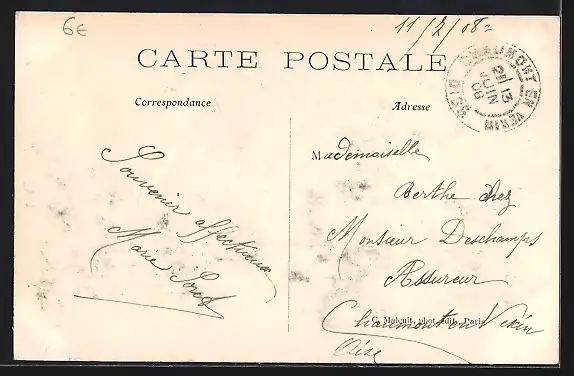 6€
11/2/08=
CARTE POSTALE
Correspondance
Adresse
CHAUMONT EN VEXIN
13
JUIN
08
OISE
Souvenir affectueux
Marie Soret
Mademoiselle
Berthe chez
Monsieur Deschamps
Assureur
C. Malcuit, phot. édit., Paris
Chaumont en Vexin
Oise